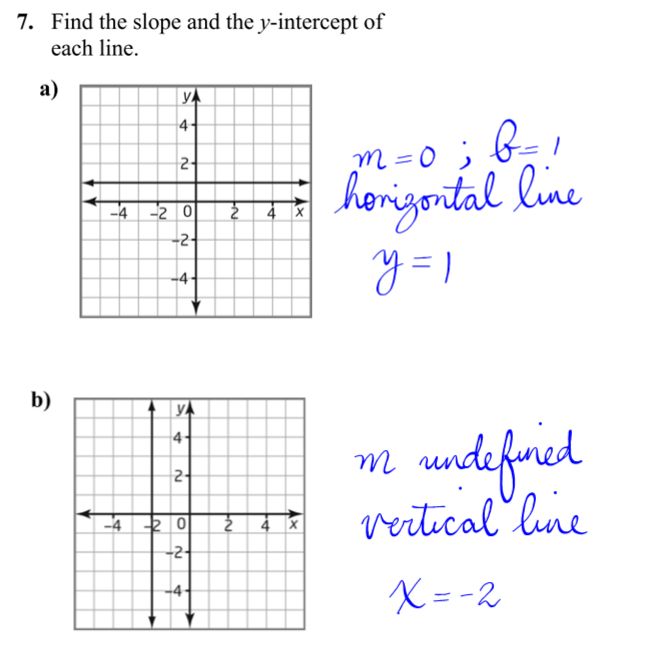 7. Find the slope and the y-intercept of
each line.
a)
y
4
2
-4 -2 0 2 4 x
-2
-4
m = 0 ; b = 1
horizontal line
y = 1
b)
y
4
2
-4 -2 0 2 4 x
-2
-4
m undefined
vertical line
x = -2